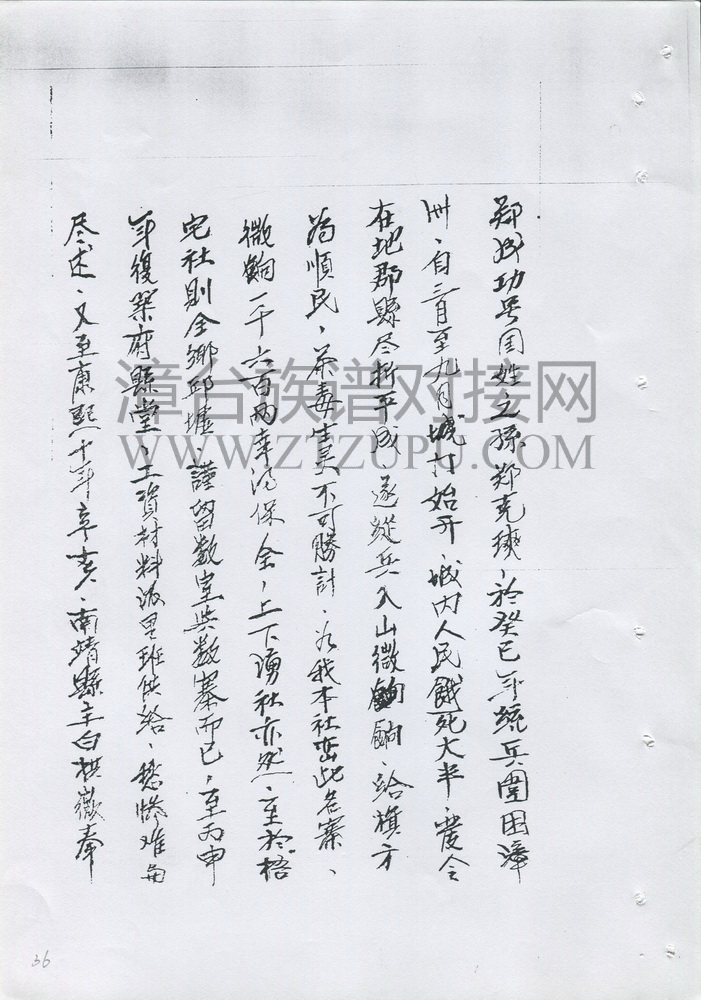 郑成功号国姓之孫郑克塽，於癸巳年統兵圍困漳
州、自三月至九月城才始开、城内人民餓死大半、爱令
在地郡縣尽折平城、遂縱兵入山徵餉、给旗方
為順民，荼毒生灵不可勝計、次我本社岀此名寨、
徵餉一千六百两幸淂保全，上下湧社亦然、至於梧
宅社則全鄉邱墟、謹留数室与数寨而已，至丙申
年復築府縣堂、工資材料派里班供給、愁惨难尽
尽述、又至康熙十年辛亥、南靖縣主白栱徽奉
漳台族谱对接网
WWW.ZTZUPU.COM
36